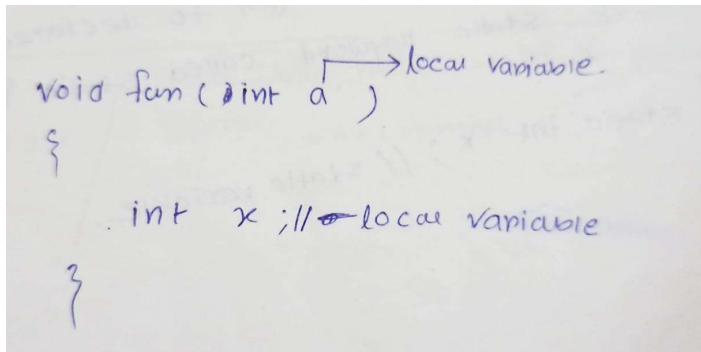 local variable.
void fun ( int a )
{
int x ; // local variable
}